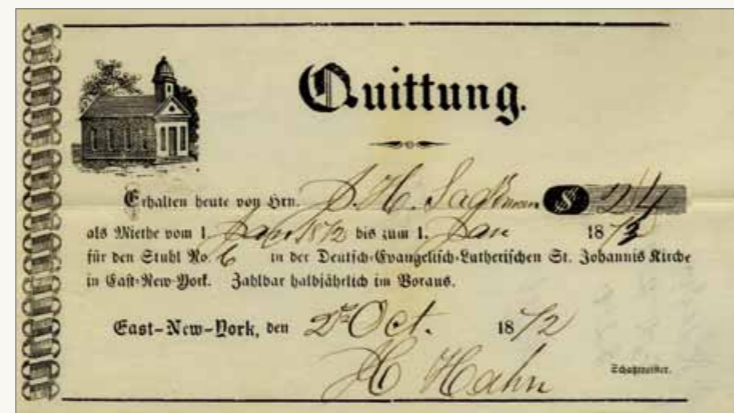 Quittung.
Erhalten heute von Hrn. J. H. $ 24
als Miethe vom 1. Jan 1872 bis zum 1. Jan 1873
für den Stuhl No. 6 in der Deutsch-Evangelisch-Lutherischen St. Johannis Kirche
in East-New-York. Zahlbar halbjährlich im Voraus.
East-New-York, den 2t Oct. 1872
H Hahn
Schatzmeister.